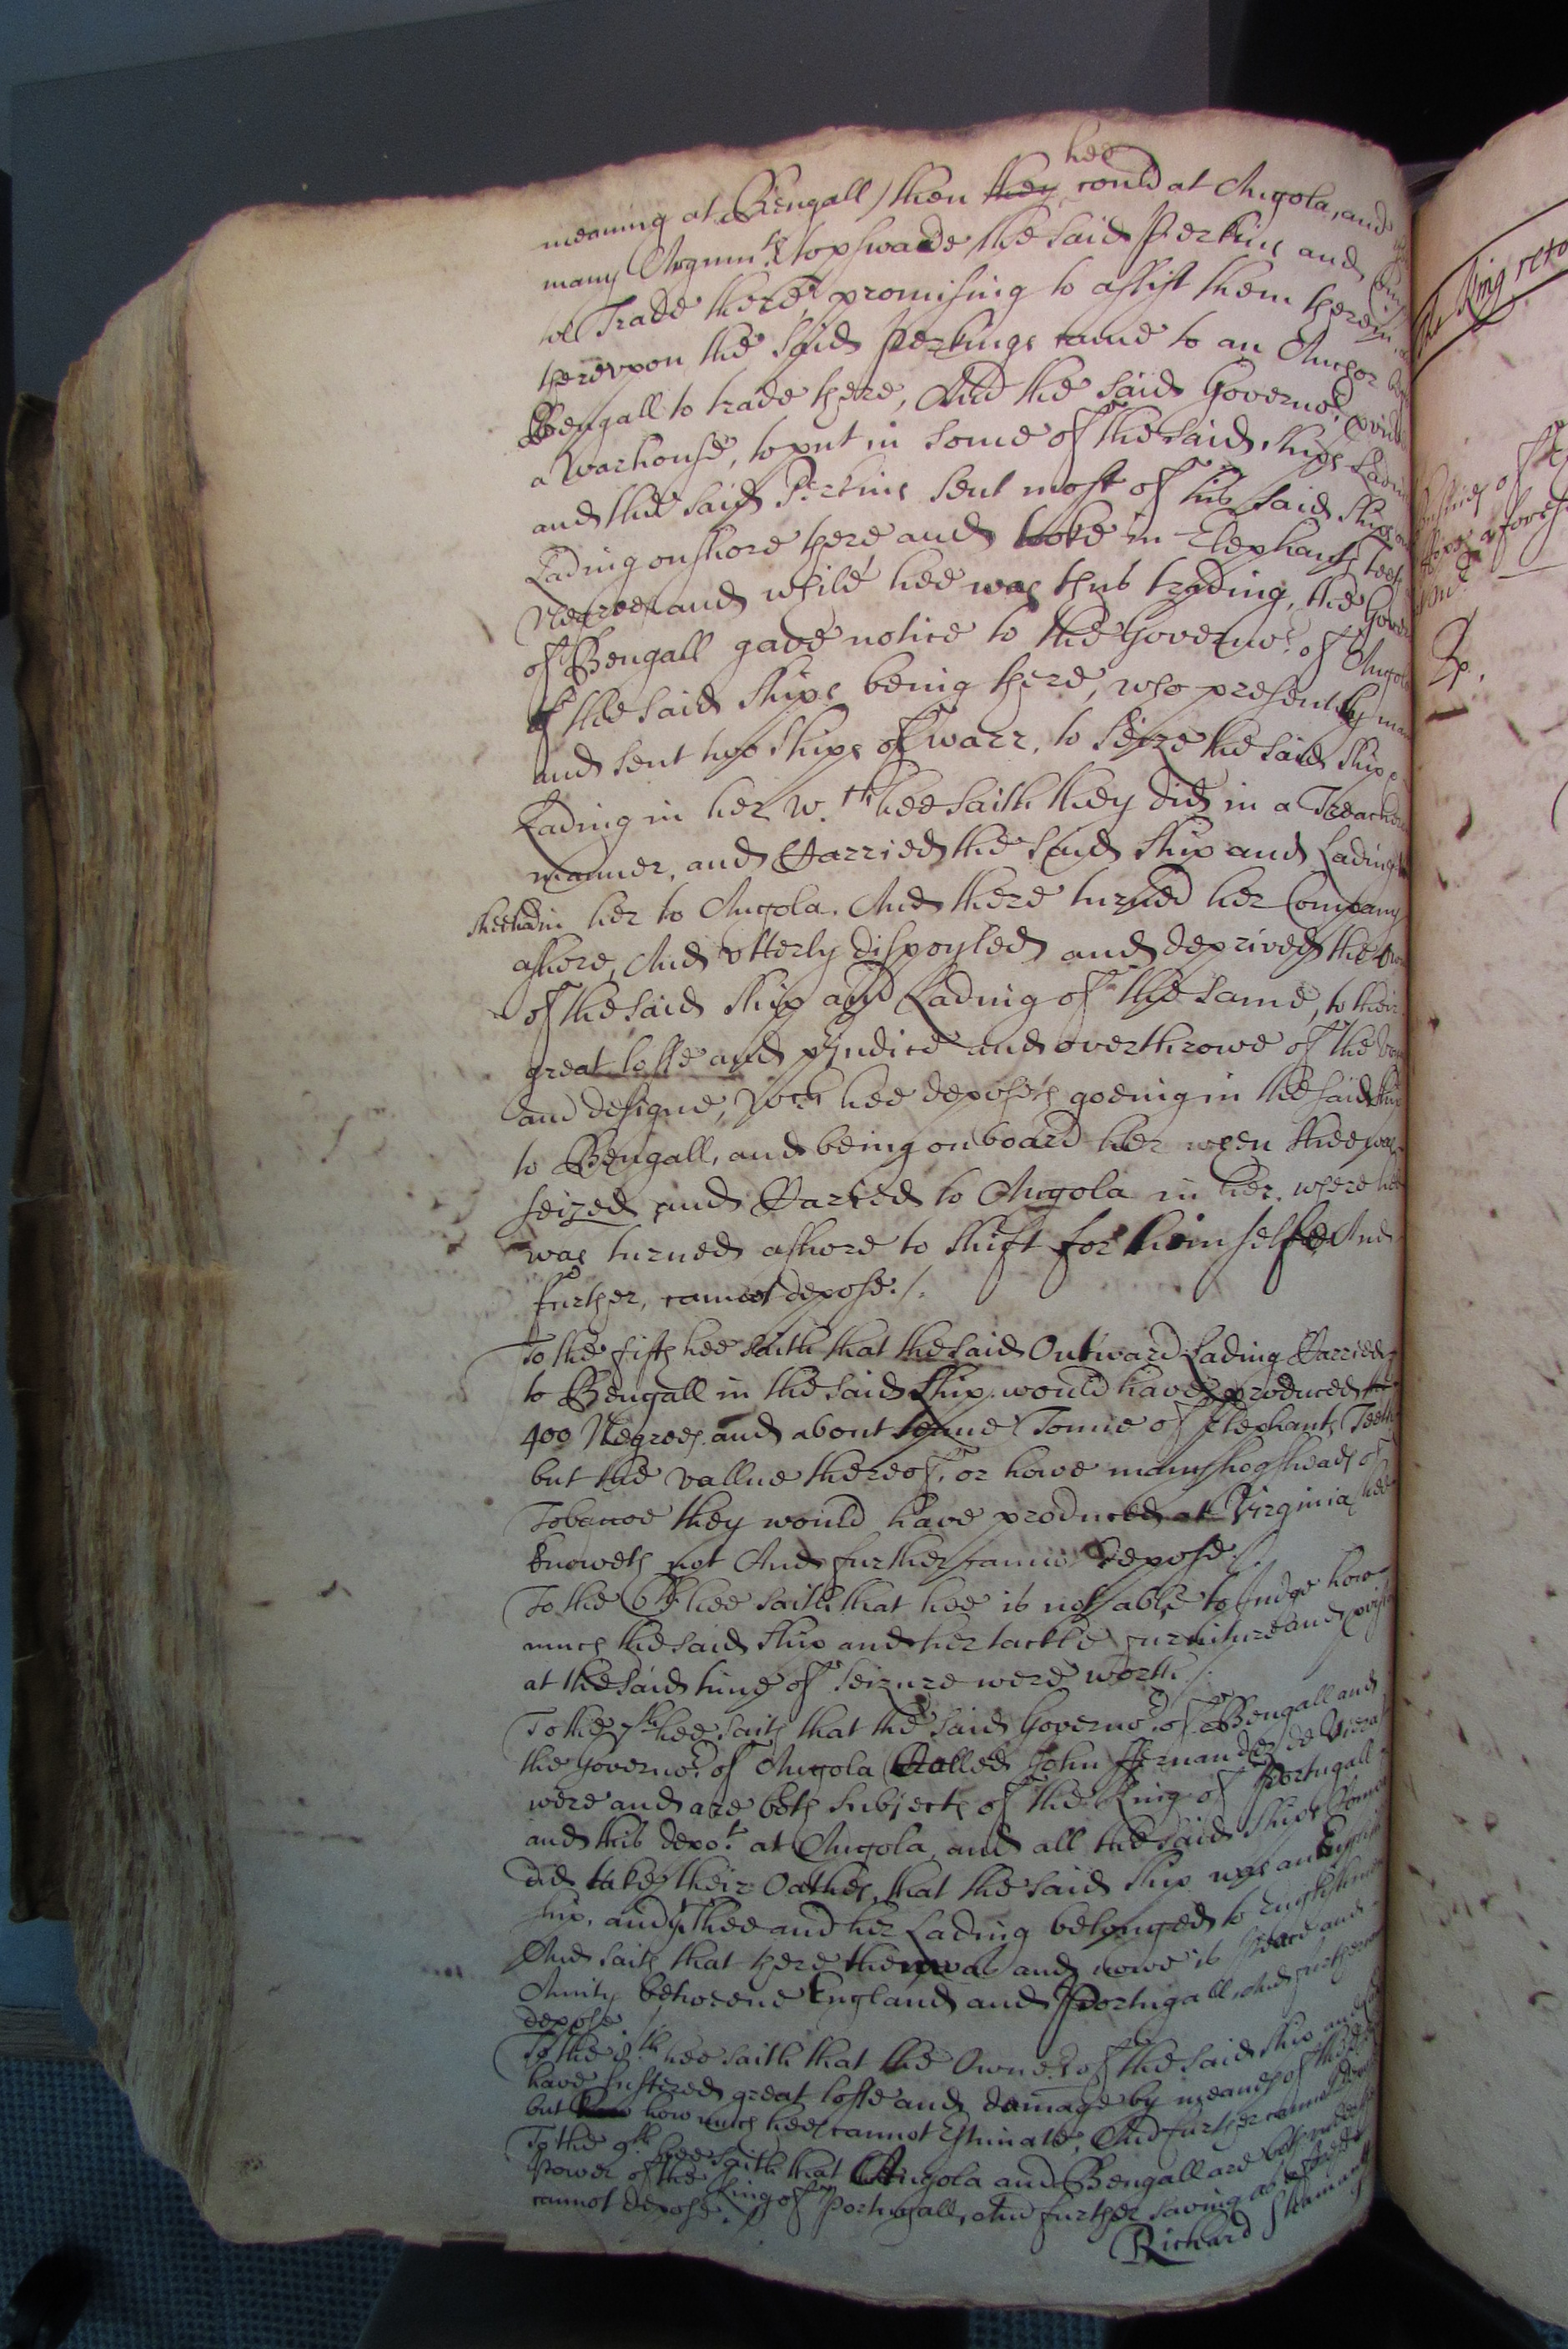 hee
meaning at Bengall) then they could at Angola, and
many Argumts to pswade the said Perkins and
to Trade there, promising to assist them therein,
therevpon the said Perkings came to an Anchor
Bengall to trade there, And the said Governor
a warhouse, to put in some of the said ships Ladin
and the said Perkins sent most of his said ships
Lading on shore there and tooke in Elephants Teeth
Negroes and while hee was thus trading, the Gover
of Bengall gave notice to the Governor of Angola
of the said ships being there, who presently
and sent two ships of warr, to seize the said ship
Lading in her wch hee saith they did in a Treachero
manner, and Carried the said ship and Lading
shee had in her to Angola. And there turned her Company
ashore, And vtterly dispoyled and deprived the
of the said ship and Lading of the same, to their
great losse and pjudice and overthrowe of the
and designe, wch hee deposeth goeing in the said ship
to Bengall, and being on board her when shee was
seized and Carried to Angola in her. where hee
was turned ashore to shift for himselfe And
further, cannot depose./.
To the fifth hee saith that the said Outward Lading Carried
to Bengall in the said ship would have produced
400 Negroes and about Tonne of Elephants Teeth
but the vallue thereof, or howe many hogsheads of
Tobaccoe they would have produced at Virginia hee
knoweth not And further cannot depose./.
To the 6th hee saith that hee is not able to Judge how
much the said ship and her tackle furniture and
at the said time of seizure were worth./.
To the 7th hee saith that the said Governor of Bengall and
the Governor of Angola Called John ffernandez de Viera
were and are both subjects of the King of Portugall
and this depot at Angola, and all the said ships
did take their Oathes, that the said ship was an English
ship, and yt shee and her Lading belonged to Englishmen
And saith that there then was and nowe is peace and
Amity betweene England and Portugall, And further
depose./
To the 8th hee saith that the Owners of the said ship and
have suffered great losse and damage by meanes of the
but how much hee cannot Estimate, And further cannot depose
To the 9th hee saith that Angola and Bengall are both under the
Power of the King of Portugall, And further saving as aforesaid
cannot depose./.
Richard